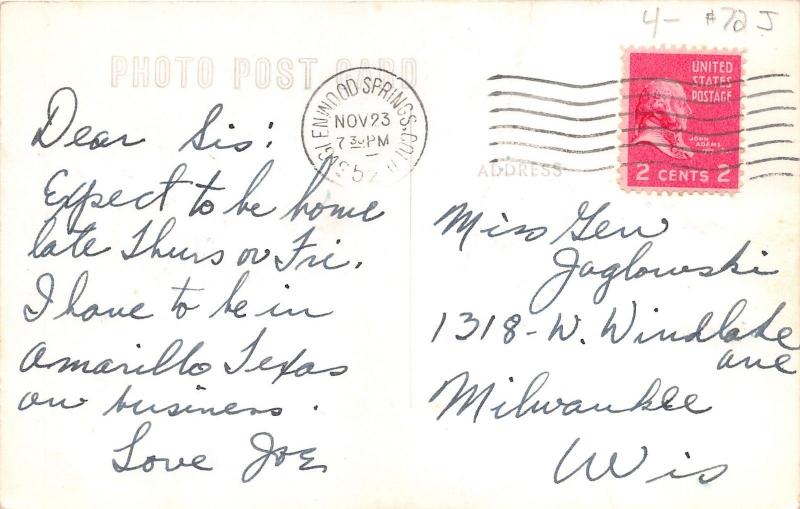 4- #72 J
PHOTO POST CARD
GLENWOOD SPRINGS, COLO.
NOV 23
7 30 PM
1952
UNITED
STATES
POSTAGE
JOHN
ADAMS
2 CENTS 2
ADDRESS
Dear Sis:
Expect to be home
late Thurs or Fri.
I have to be in
Amarillo Texas
on business.
Love Joe
Miss Gen
Jaglowski
1318-W. Windlake
ave
Milwaukee
Wis